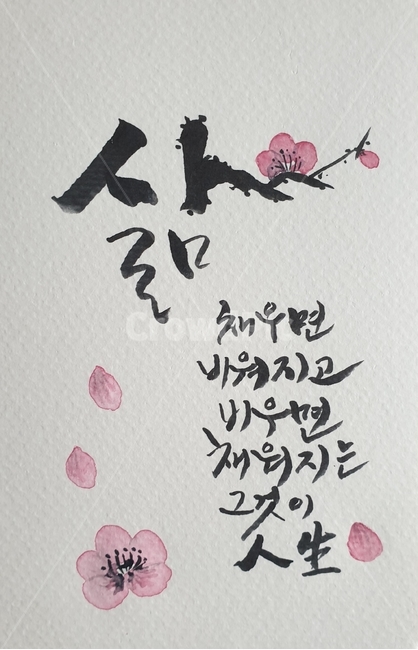 삶
채우면
비워지고
비우면
채워지는
그것이
人生